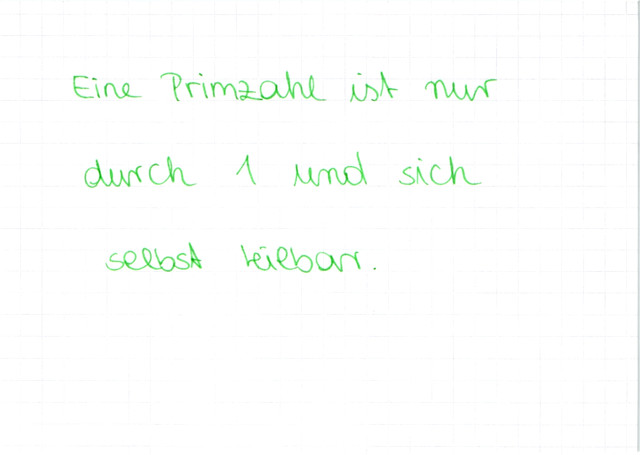 Eine Primzahl ist nur
durch 1 und sich
selbst teilbar.